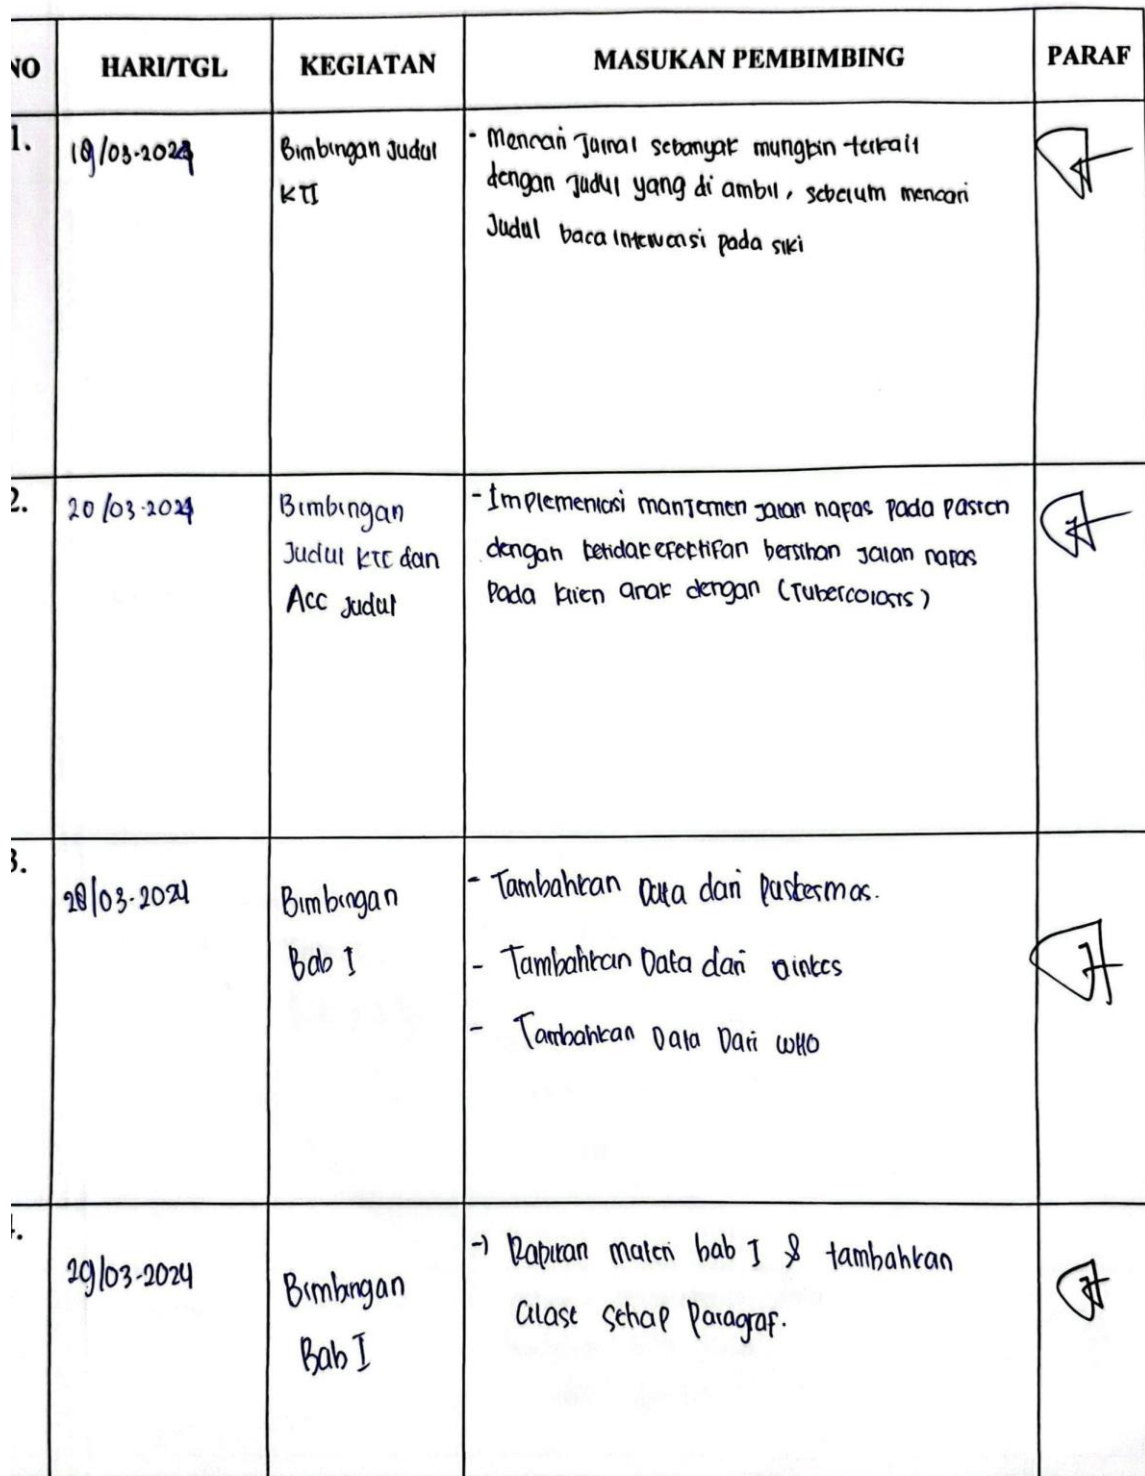 NO HARI/TGL KEGIATAN MASUKAN PEMBIMBING PARAF
1. 19/03-2024 Bimbingan Judul - Mencari Jurnal sebanyak mungkin terkait
KTI dengan Judul yang di ambil, sebelum mencari
Judul baca intervensi pada siki
2. 20/03-2024 Bimbingan - Implementasi manjemen jalan nafas pada pasien
Judul KTI dan dengan ketidakefektifan bersihan Jalan nafas
Acc Judul Pada klien anak dengan (Tubercolosis)
3. 28/03-2024 Bimbingan - Tambahkan Data dari Puskesmas.
Bab I - Tambahkan Data dari Dinkes
- Tambahkan Data Dari WHO
29/03-2024 Bimbingan -) Rapikan materi bab I & tambahkan
Bab I setiap Paragraf.